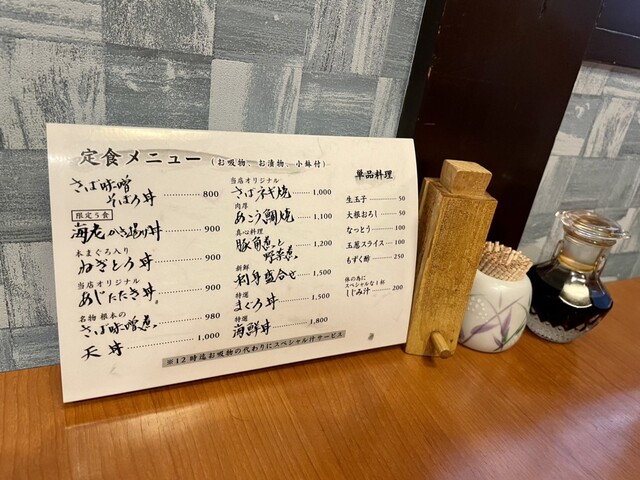 定食メニュー (お吸物、お漬物、小鉢付)
さば味噌
そぼろ丼 800
限定5食
海老かき揚げ丼 900
本まぐろ入り
ねぎとろ丼 900
当店オリジナル
あじたたき丼 900
名物 根本の
さば味噌煮 980
天丼 1,000
当店オリジナル
さばネギ焼 1,000
肉厚
あこう鯛焼 1,100
真心料理
豚角煮と
野菜煮 1,200
新鮮
刺身盛合せ 1,500
特選
まぐろ丼 1,500
特選
海鮮丼 1,800
単品料理
生玉子 50
大根おろし 50
なっとう 100
玉葱スライス 100
もずく酢 250
体の為に
スペシャルな1杯
しじみ汁 200
※12時迄お吸物の代わりにスペシャル汁サービス